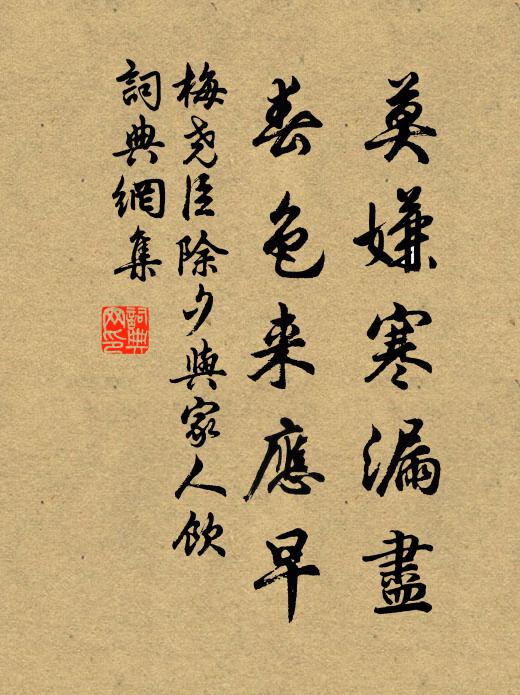 莫嫌寒漏盡
春色来應早
梅尧臣除夕與家人飲
詞典網集
詞典
网印